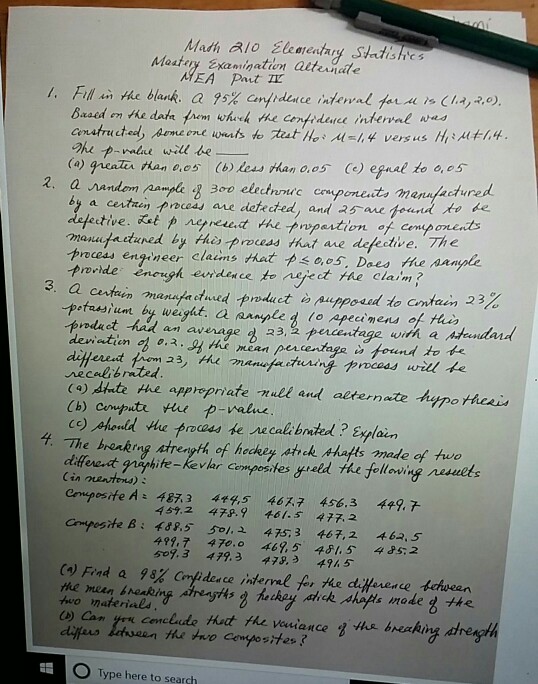 Math 210 Elementary Statistics
Mastery Examination Alternate
MEA Part IV
1. Fill in the blank. A 95% confidence interval for μ is (1.2, 2.0).
Based on the data from which the confidence interval was
constructed, someone wants to test H₀: μ=1.4 versus H₁: μ≠1.4.
The p-value will be ____
(a) greater than 0.05 (b) less than 0.05 (c) equal to 0.05
2. A random sample of 300 electronic components manufactured
by a certain process are detected, and 25 are found to be
defective. Let p represent the proportion of components
manufactured by this process that are defective. The
process engineer claims that p≤0.05. Does the sample
provide enough evidence to reject the claim?
3. A certain manufactured product is supposed to contain 23%
potassium by weight. A sample of 10 specimens of this
product had an average of 23.2 percentage with a standard
deviation of 0.2. If the mean percentage is found to be
different from 23, the manufacturing process will be
recalibrated.
(a) State the appropriate null and alternate hypothesis
(b) Compute the p-value.
(c) Should the process be recalibrated? Explain
4. The breaking strength of hockey stick shafts made of two
different graphite-Kevlar composites yield the following results
(in newtons):
Composite A: 487.3 444.5 467.7 456.3 449.7
459.2 478.9 461.5 477.2
Composite B: 488.5 501.2 475.3 467.2 462.5
499.7 470.0 469.5 481.5 485.2
509.3 479.3 478.3 491.5
(a) Find a 98% Confidence interval for the difference between
the mean breaking strengths of hockey stick shafts made of the
two materials.
(b) Can you conclude that the variance of the breaking strength
differs between the two composites?
Type here to search